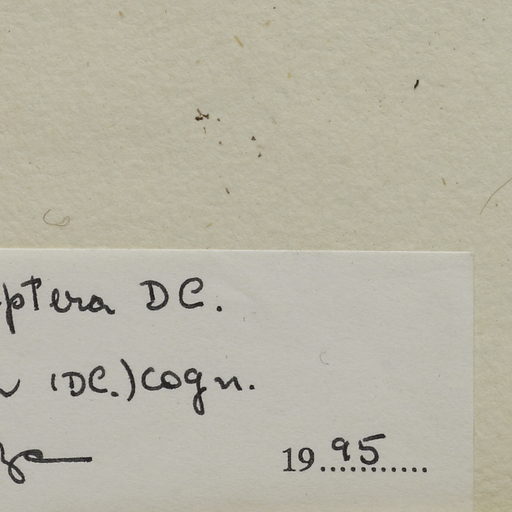 ptera DC.
(DC.) Cogn.
1995